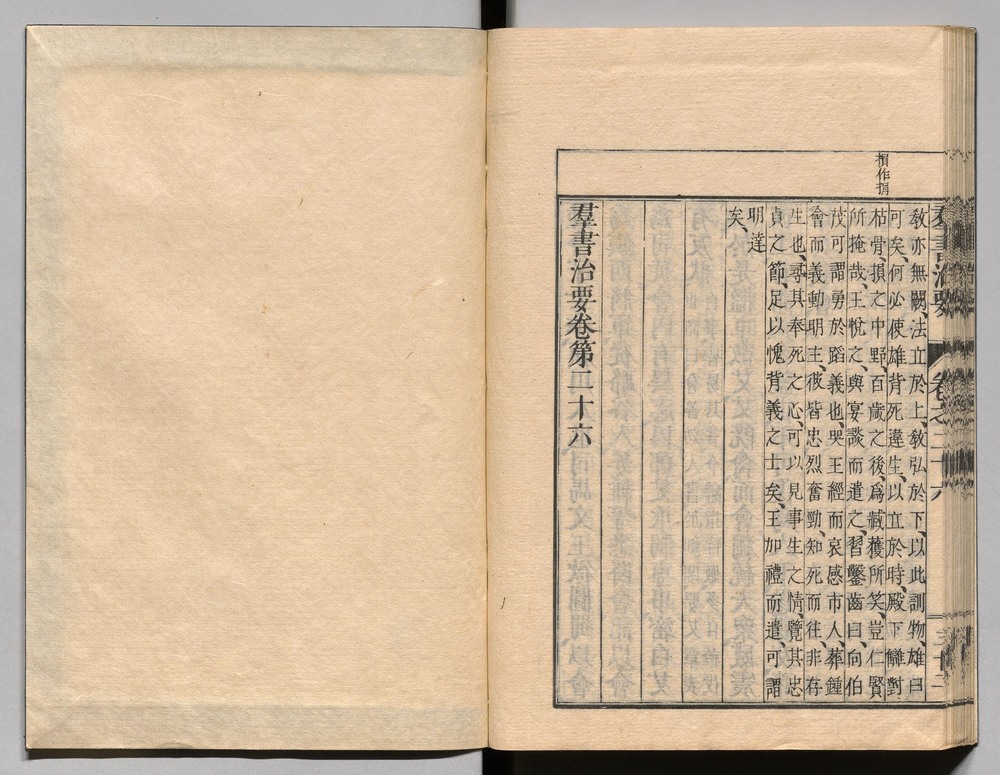 損作捐
羣書治要 卷之二十六 二十三
敎亦無闕、法立於上、敎弘於下、以此訓物、雄曰
可矣、何必使雄背死違生、以立於時、殿下讎對
枯骨、損之中野、百歲之後、爲臧獲所笑、豈仁賢
所掩哉、王悅之、與宴談而遣之、習鑿齒曰、向伯
茂可謂勇於蹈義也、哭王經而哀感市人、葬鍾
會而義動明主、彼皆忠烈奮勁、知死而往、非存
生也、尋其奉死之心、可以見事生之情、覽其忠
貞之節、足以愧背義之士矣、王加禮而遣、可謂
明達
矣、
羣書治要卷第二十六